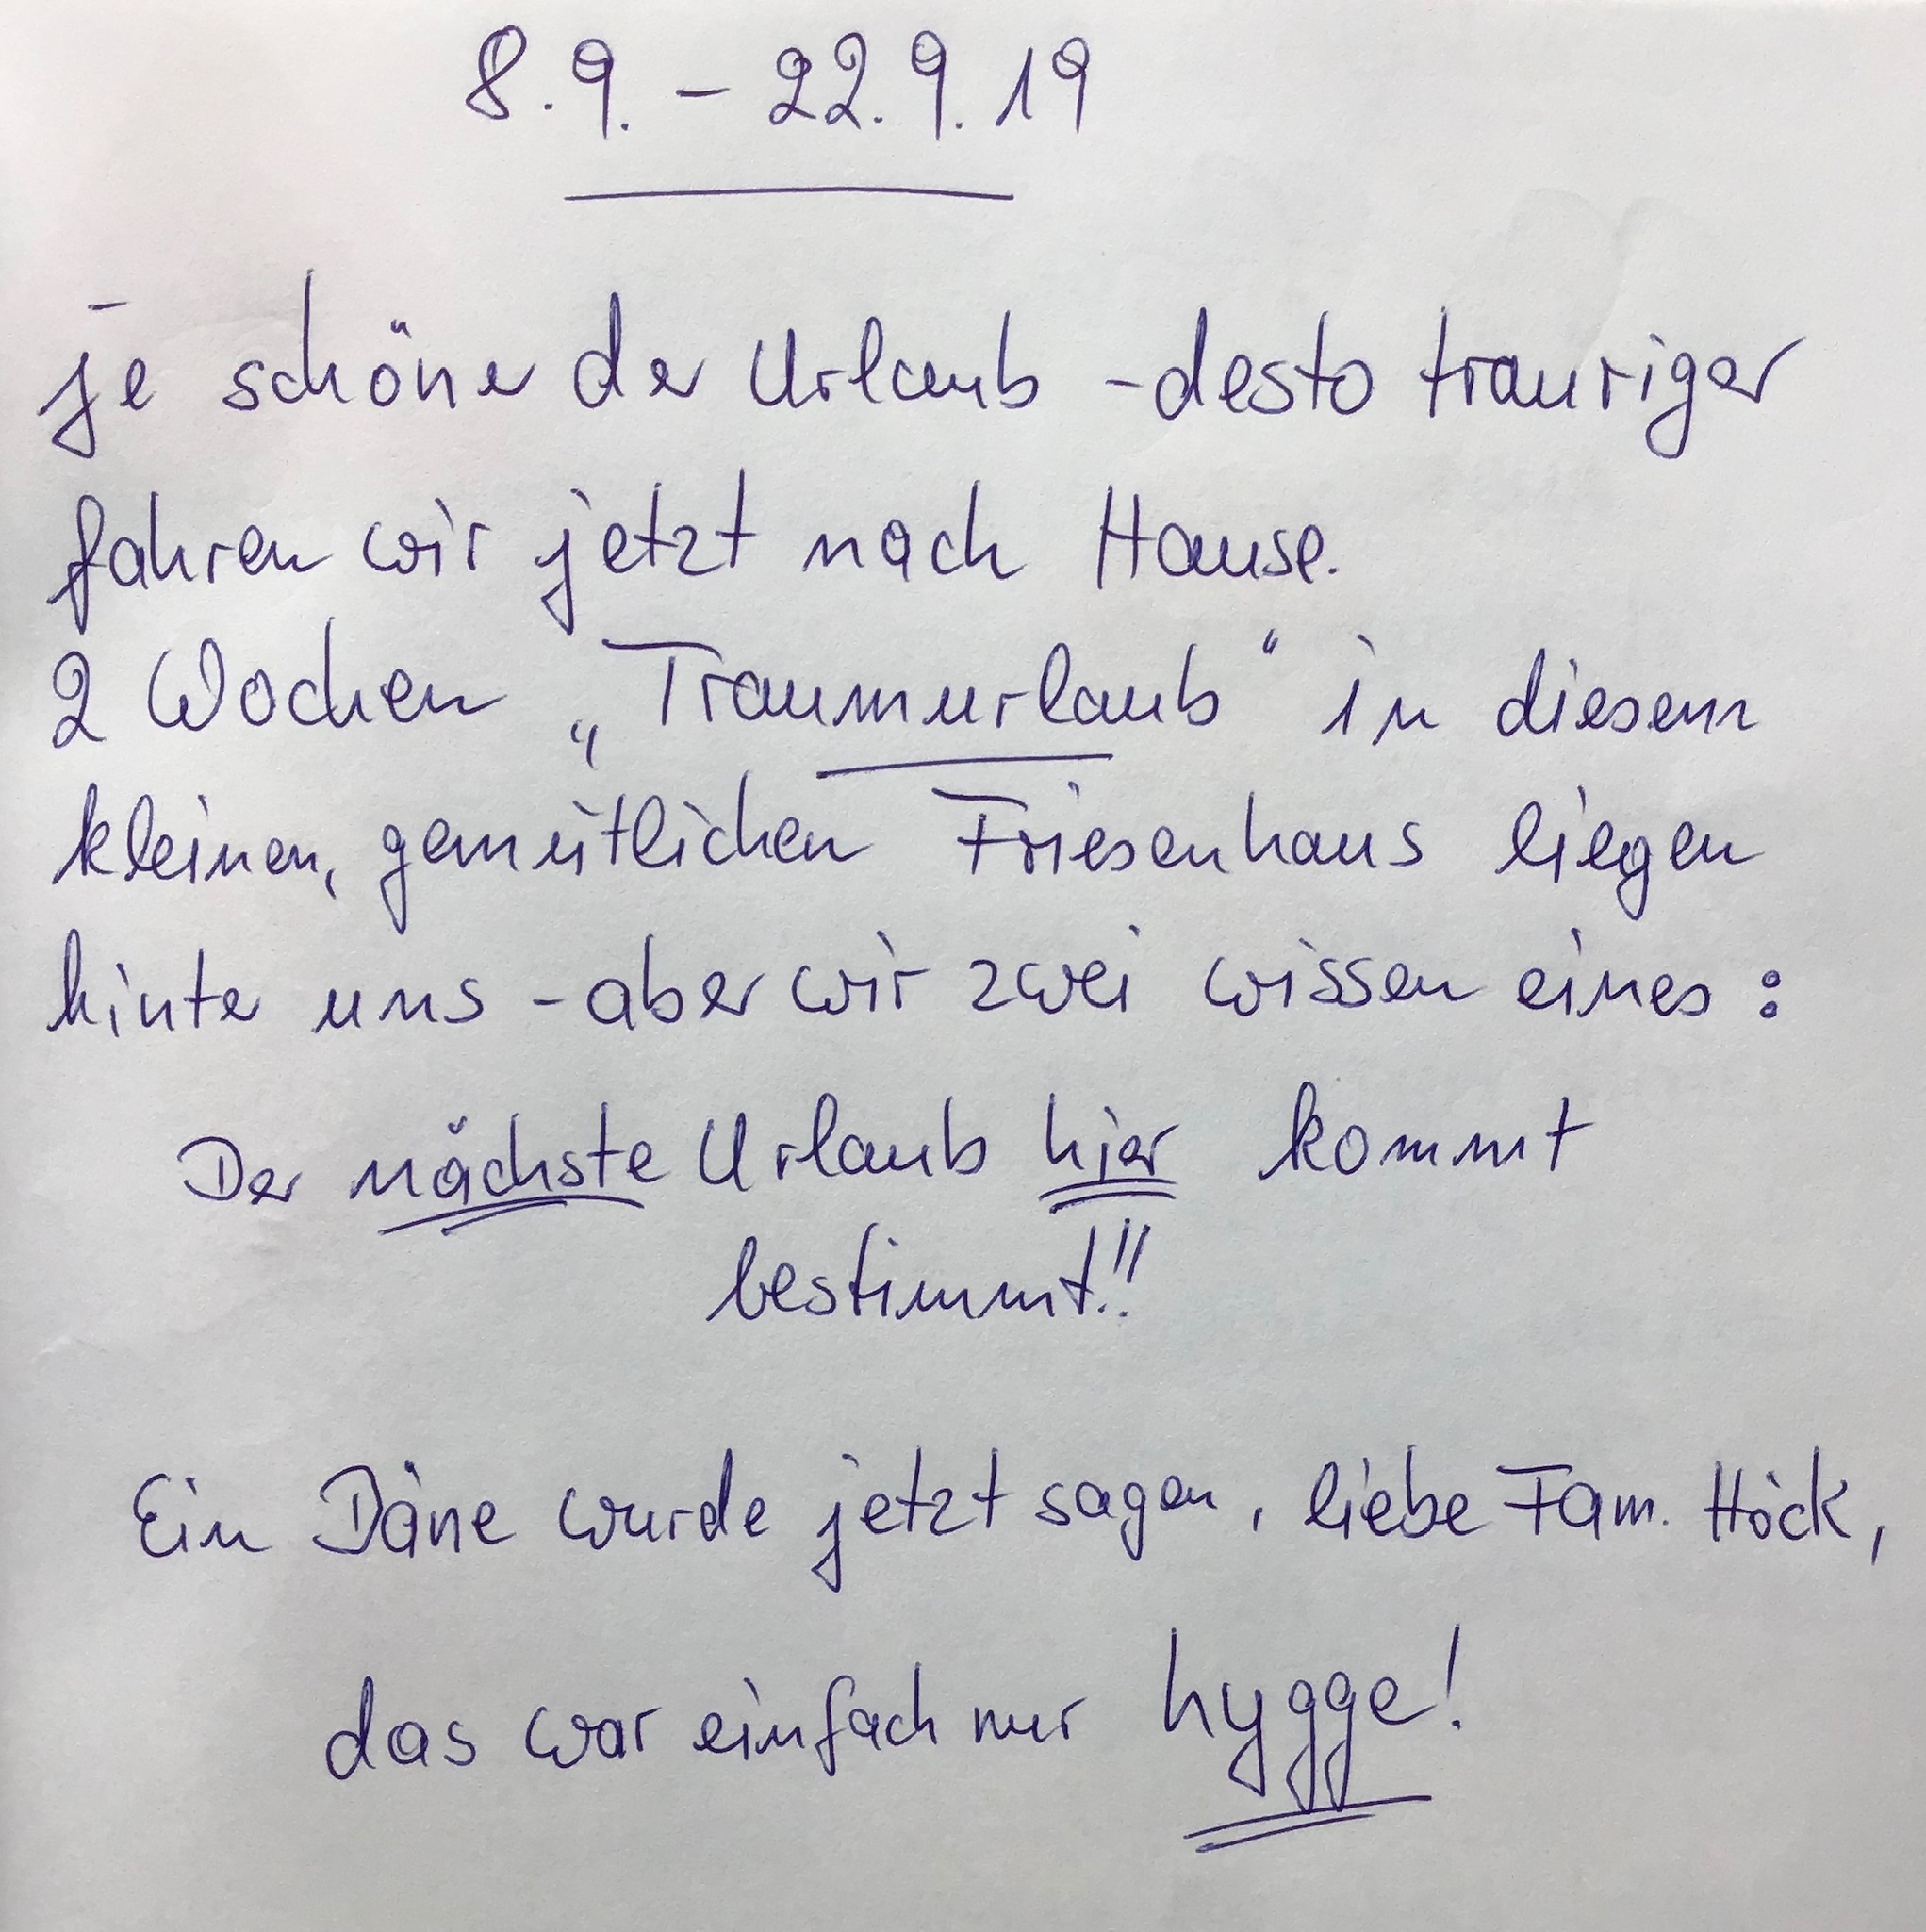 8.9. – 22.9.19
Je schöner der Urlaub – desto trauriger
fahren wir jetzt nach Hause.
2 Wochen „Traumurlaub“ in diesem
kleinen, gemütlichen Friesenhaus liegen
hinter uns – aber wir zwei wissen eines:
Der nächste Urlaub hier kommt
bestimmt!!
Ein Däne wurde jetzt sagen, liebe Fam. Höck,
das war einfach nur hygge!